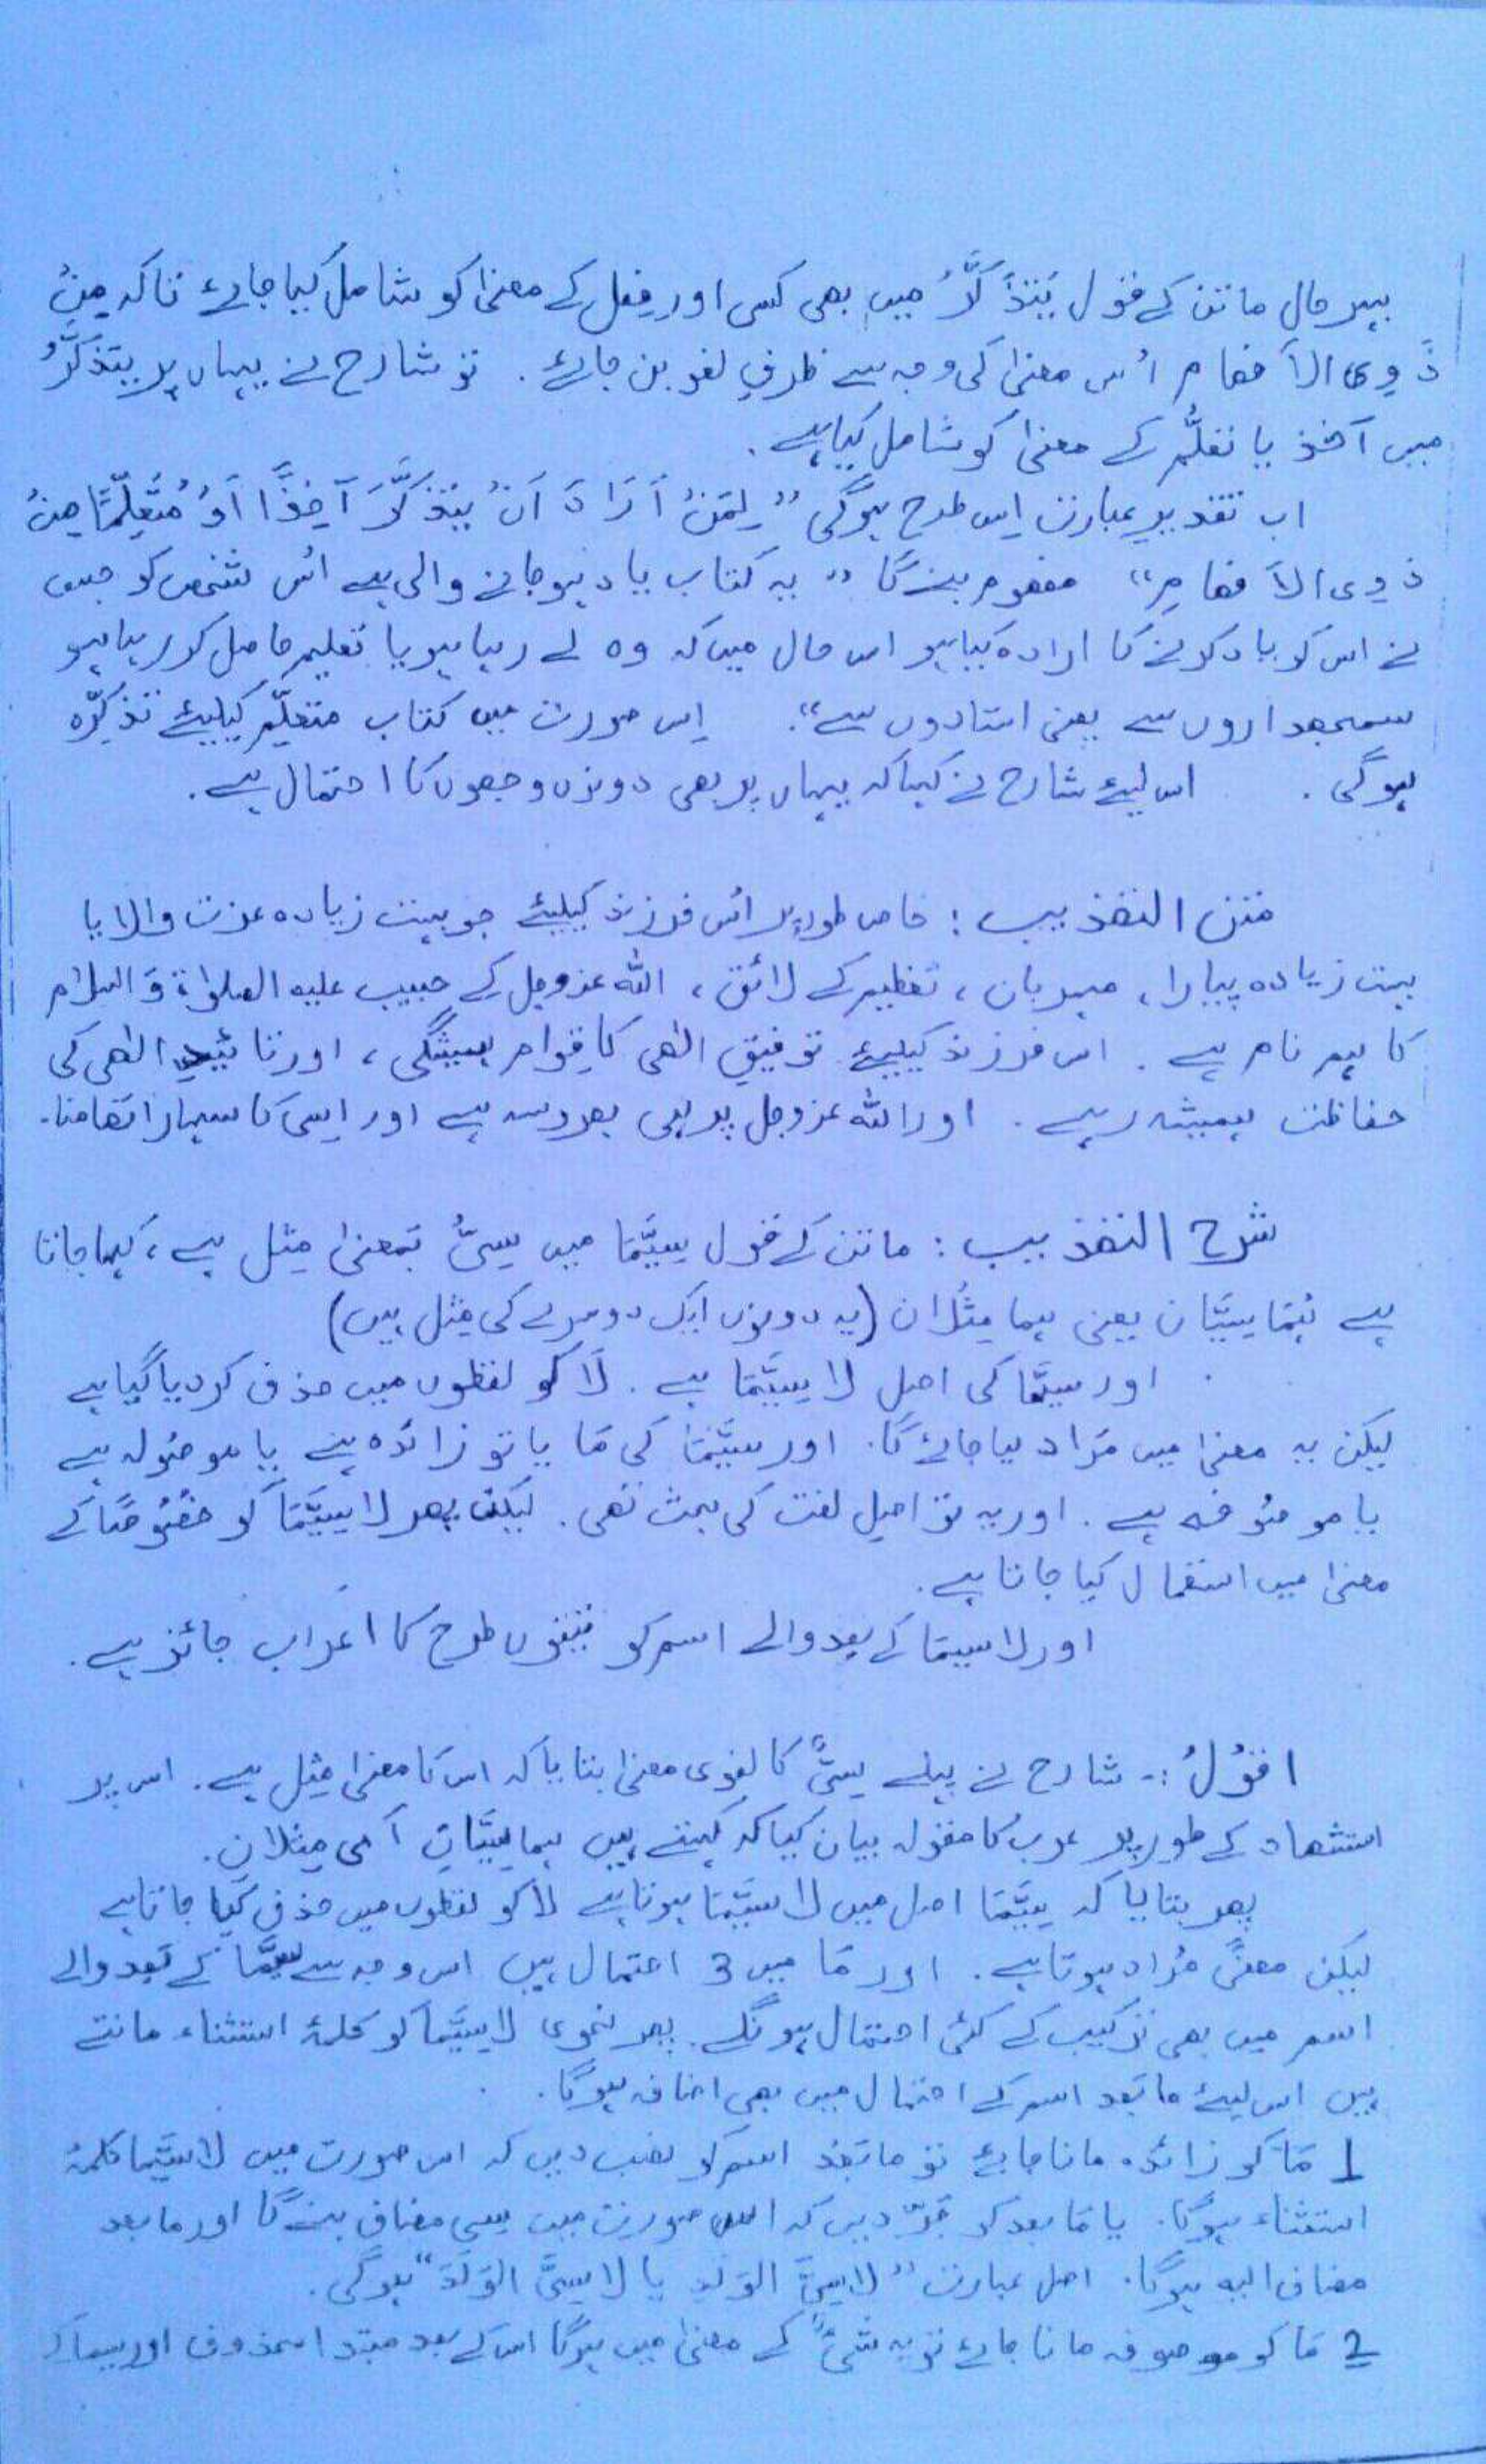 بہر حال ماتن کے قول یَتَذَکَّرُ میں بھی کسی اور فعل کے معنیٰ کو شامل کیا جائے تاکہ مِنْ
ذَوِی الاَفھام اُس معنیٰ کی وجہ سے ظرفِ لغو بن جائے . تو شارح نے یہاں پر یتَذَکَّرُ
میں آخذ یا تعلُّم کے معنیٰ کو شامل کیا ہے .
اب تقدیرِ عبارت اِس طرح ہوگی " لِمَنْ اَرَادَ اَنْ یتَذَکَّرَ آخِذًا اَوْ مُتَعَلِّمًا مِنْ
ذوِی الاَفھامِ" مفھوم بنے گا " یہ کتاب یاد ہو جانے والی ہے اُس شخص کو جس
نے اس کو یاد کرنے کا ارادہ کیا ہو اس حال میں کہ وہ لے رہا ہو یا تعلیم حاصل کر رہا ہو
سمجھداروں سے یعنی استادوں سے ". اِس صورت میں کتاب متعلِّم کیلیئے تذکِرَہ
ہوگی . اس لیئے شارح نے کہا کہ یہاں پر بھی دونوں وجھوں کا احتمال ہے .
متن التھذیب : خاص طور پر اُس فرزند کیلیئے جو بہت زیادہ عزت والا یا
بہت زیادہ پیارا ، مہربان ، تعظیم کے لائق ، اللہ عزوجل کے حبیب علیہ الصلوٰۃ وَ السلام
کا ہم نام ہے . اس فرزند کیلیئے توفیقِ الٰھی کا قِوام ہمیشگی ، اور تائیدِ الٰھی کی
حفاظت ہمیشہ رہے . اور اللہ عزوجل پر ہی بھروسہ ہے اور اِسی کا سہارا تھامنا .
شرح التھذیب : ماتن کے قول سِیَّمَا میں سِیُّ بَمعنیٰ مِثل ہے ، کہا جاتا
ہے ہُمَا سِیَّان یعنی ہما مِثْلان (یہ دونوں ایک دوسرے کی مِثل ہیں)
اور سیمَّا کی اصل لا سِیَّمَا ہے . لَا کو لفظوں میں حذف کر دیا گیا ہے
لیکن یہ معنیٰ میں مُراد لیا جائے گا . اور سیَّمَا کی مَا یا تو زائدہ ہے یا موصُولہ ہے
یا موصُوفہ ہے . اور یہ تو اصل لغت کی بحث تھی . لیکن پھر لا سِیَّمَا کو خصُوصًا کے
معنیٰ میں استعمال کیا جاتا ہے .
اور لا سیمَا کے بعد والے اسم کو تینوں طرح کا اعراب جائز ہے .
اقوُلُ :- شارح نے پہلے سِیٌّ کا لغوی معنیٰ بتایا کہ اس کا معنیٰ مِثل ہے . اس پر
استشھاد کے طور پر عرب کا مقولہ بیان کیا کہ کہتے ہیں ہما سِیَّانِ اَی مِثلانِ .
پھر بتایا کہ سِیَّمَا اصل میں لا سیَّمَا ہوتا ہے لا کو لفظوں میں حذف کیا جاتا ہے
لیکن معنًی مُراد ہوتا ہے . اور مَا میں 3 احتمال ہیں اس وجہ سے سیمَّا کے بَعد والے
اسم میں بھی ترکیب کے کئی احتمال ہونگے . پھر نحوی لا سِیَّمَا کو کلمۂ استثناء مانتے
ہیں اس لیئے ما بَعد اسم کے احتمال میں بھی اضافہ ہوگا .
1 مَا کو زائدہ مانا جائے تو ما بَعْد اسم کو نصب دیں کہ اس صورت میں لا سیَّما کلمۂ
استثناء ہوگا . یا مَا بعد کو جَرّ دیں کہ اس صورت میں سِی مضاف بنے گا اور ما بعد
مضاف الیہ ہوگا . اصل عبارت " لا سِیَّ الوَلَدِ یا لا سِیَّ الوَلَدَ " ہوگی .
2 مَا کو موصوفہ مانا جائے تو یہ شَیْءٌ کے معنیٰ میں ہوگا اس کے بعد مبتدا محذوف اور